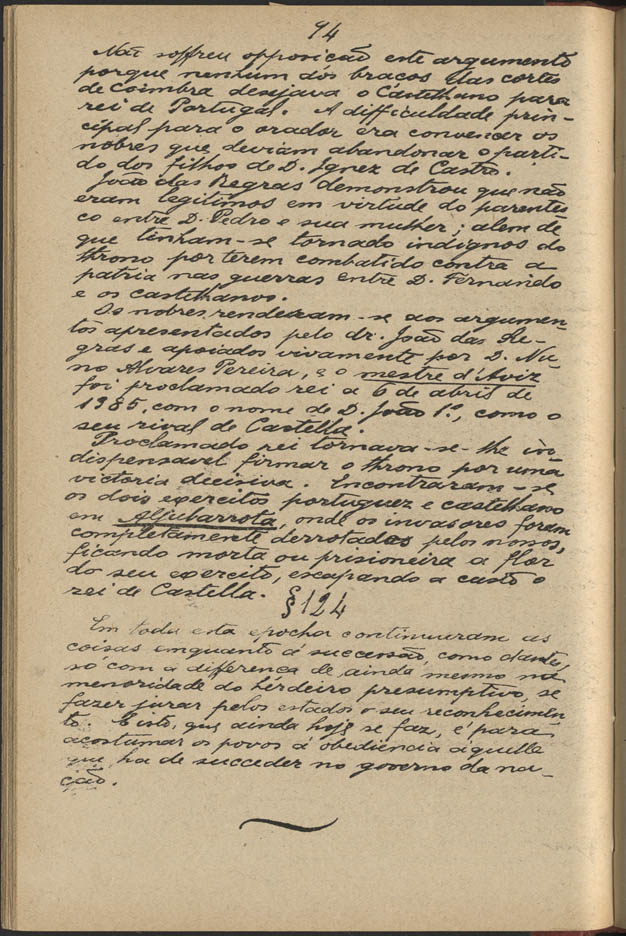 94
Não soffreu opposicão este argumento
porque nenhum dos bracos das cortes
de Coimbra desejava o Castelhano para
rei de Portugal. A difficuldade prin-
cipal para o orador era convencer os
nobres que deviam abandonar o parti-
do dos filhos de D. Ignez de Castro.
João das Regras demonstrou que não
eram legitimos em virtude do parentes
co entre D. Pedro e sua mulher; alem de
que tinham-se tornado indignos do
throno por terem combatido contra a
patria nas guerras entre D. Fernando
e os castelhanos.
Os nobres renderam-se aos argumen-
tos apresentados pelo dr. João das Re-
gras e apoiados vivamente por D. Nu-
no Alvares Pereira, e o mestre d'Aviz
foi proclamado rei a 6 de abril de
1385, com o nome de D. João 1º, como o
seu rival de Castella.
Proclamado rei tornava-se-lhe in
dispensavel firmar o throno por uma
victoria decisiva. Encontraram-se
os dois exercitos portuguez e castelhano
em Aljubarrota, onde os invasores foram
completamente derrotados pelos nossos,
ficando morta ou prisioneira a flor
do seu exercito, escapando a custo o
rei de Castella.
§124
Em toda esta epocha continuaram as
coisas emquanto á successão, como dantes,
só com a differenca de ainda mesmo na
menoridade do herdeiro presumptivo, se
fazer jurar pelos estados o seu reconhecimen
to. E isto, que ainda hoje se faz, é para
acostumar os povos á obediencia áquelle
que ha de succeder no governo da na-
ção.